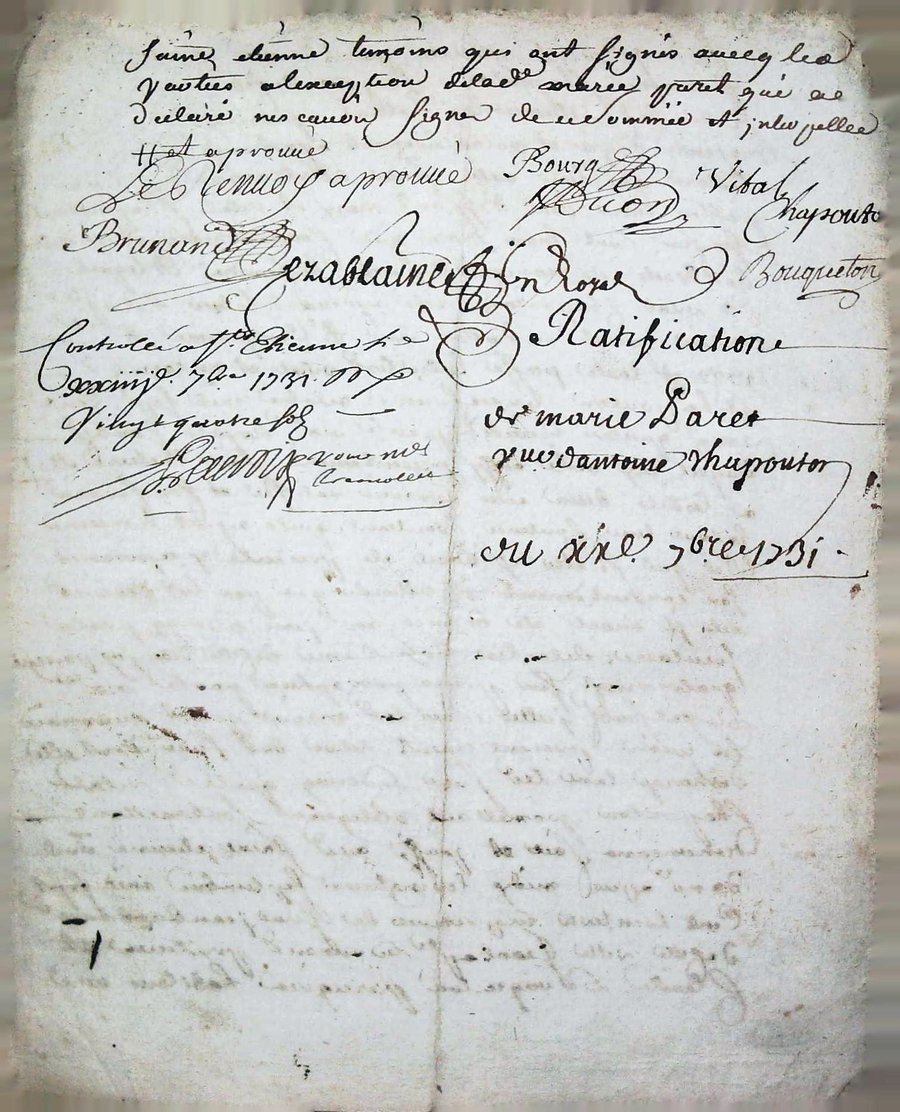 saint etienne temoins qui ont signés avecq les
parties alexception deladte marie paret qui a
declaré ne scavoir signer de ce sommée et interpellée
et aprouvé
Le Renvoy aprouvé
Bourg
Vital
Chapouto
Brunand
Cezablaine
Royal
Bouqueton
Controllé a St. Etienne le
xxiiije. 7bre 1731.
Vingt quatre sols
Ratification
de marie Paret
vve dantoine Chapouton
du xxe. 7bre 1731.